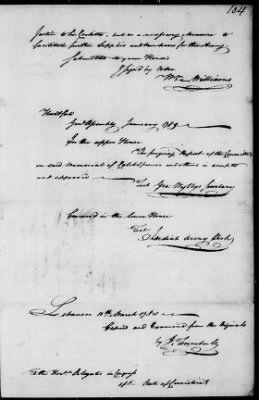 104
Justice to the Creditors, but as a necessary Measure to
facilitate further Supplies and purchases for the Army
Submitted to your Honors
Signd by order
Wm Williams
Hartford
Genl Assembly January 1781
In the upper House
The foregoing Report of the Committee
on said memorial of and others is accepted
and approved
Test Geo Wyllys Secretary
Concurred in the lower House
Test
Jedediah Strong Clerk
Lebanon 10th March 1781
Copied and Examined from the Originals
by J Trumbull
To the Honble Delegates in Congress
of the State of Connecticut